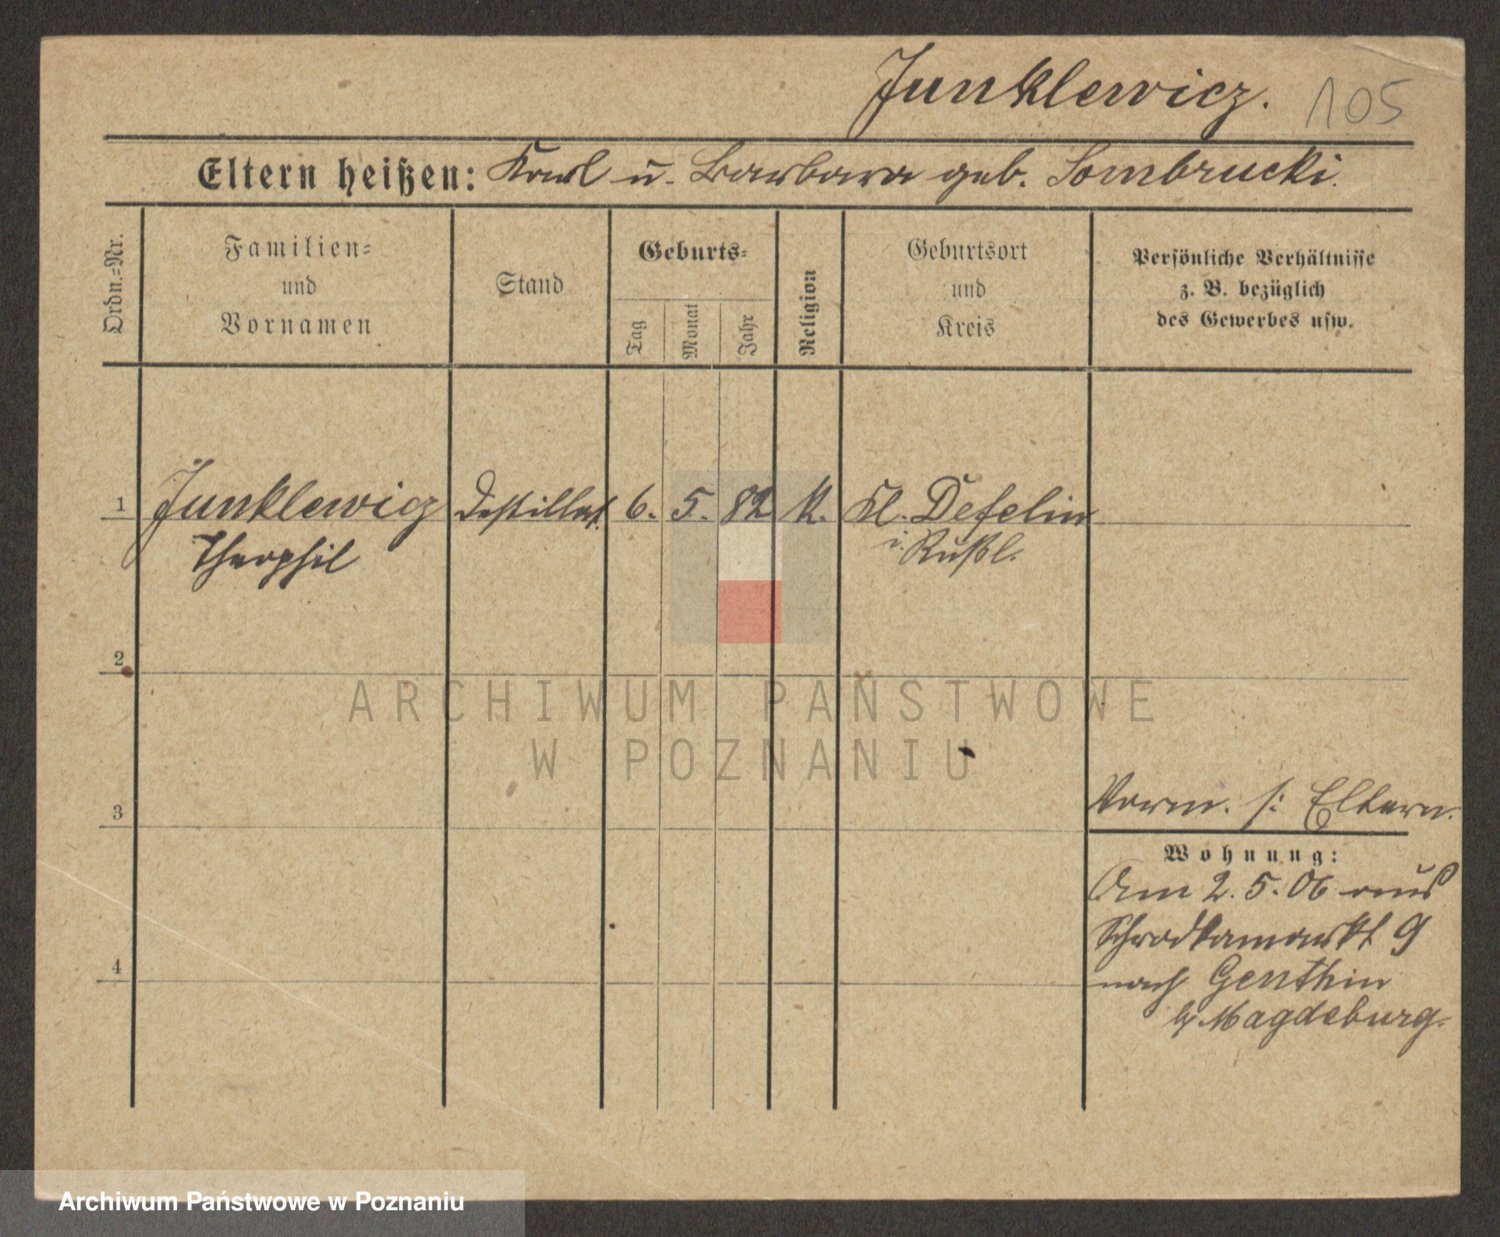 Junklewicz. 105
Eltern heißen: Karl u. Barbara geb. Sombrucki.
Ordn.=Nr.
Familien=
und
Vornamen
Stand
Geburts=
Tag
Monat
Jahr
Religion
Geburtsort
und
Kreis
Persönliche Verhältnisse
z. B. bezüglich
des Gewerbes usw.
1 Junklewicz Destillat. 6. 5. 82 k. Kl. Defelin
Theophil i. Rußl.
2
ARCHIWUM PAŃSTWOWE
W POZNANIU
3 Verm. s: Eltern.
Wohnung:
Am 2. 5. 06 aus
Schrodkamarkt 9
4 nach Genthin
b/Magdeburg.
Archiwum Państwowe w Poznaniu